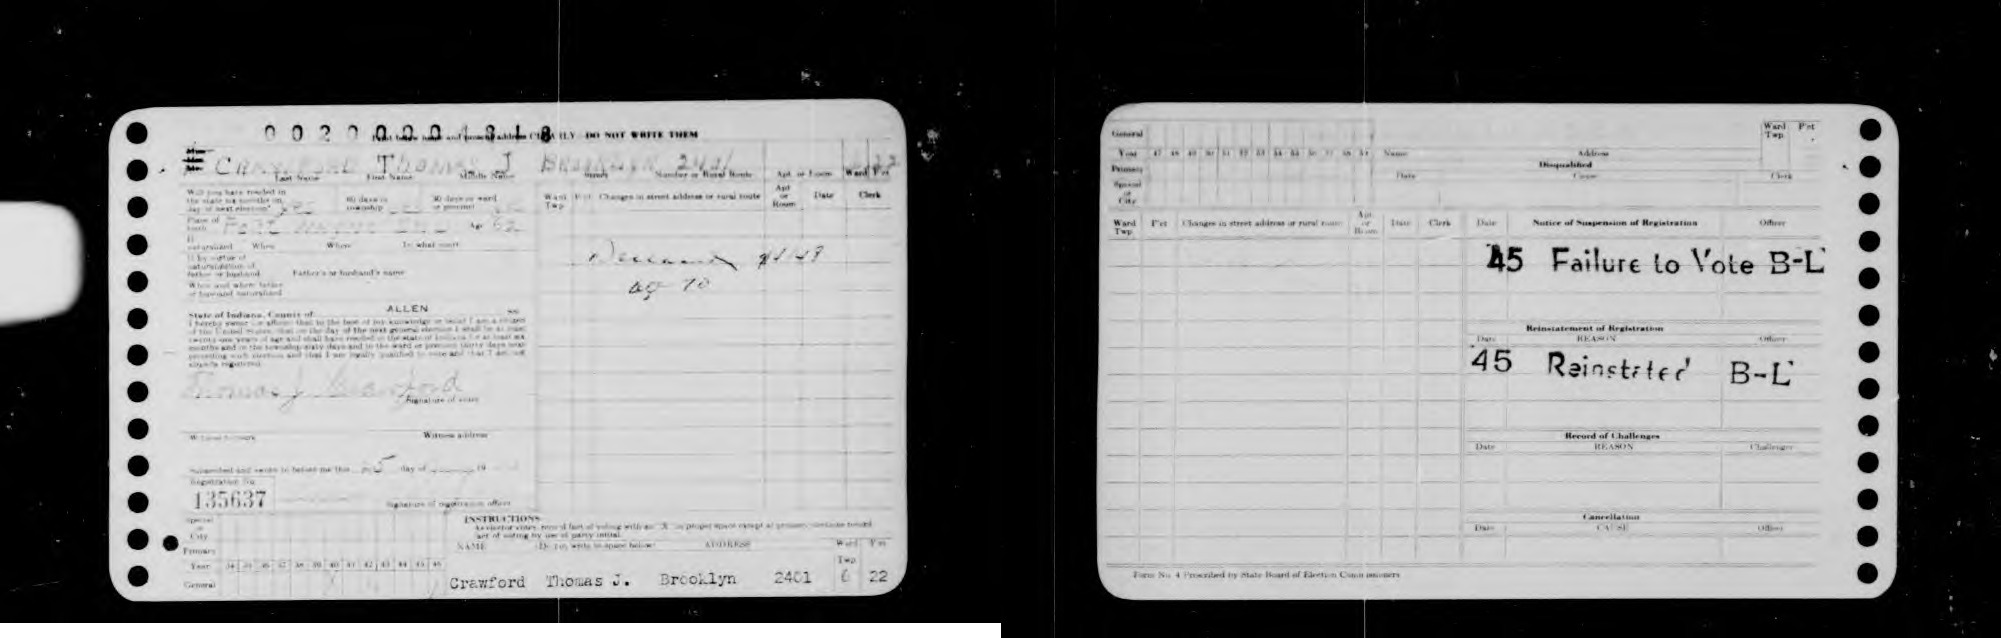 0020001818
Print below name and present address CLEARLY DO NOT WRITE THEM
CRAWFORD THOMAS J BROOKLYN 2401 22
Last Name First Name Middle Name Street Number or Rural Route Apt. or Room Ward P'ct
Will you have resided in
the state six months on 60 days in 30 days in ward
day of next election? yes township or precinct
Ward Twp P'ct Changes in street address or rural route Apt. or Room Date Clerk
Place of birth Fort Wayne Ind Age 62
If naturalized When Where In what court
If by virtue of
naturalization of
father or husband Father's or husband's name
When and where father
or husband naturalized
Deceased
ag 70
State of Indiana, County of ALLEN ss:
I hereby swear (or affirm) that to the best of my knowledge or belief I am a citizen
of the United States, that on the day of the next general election I shall be at least
twenty-one years of age and shall have resided in the state of Indiana for at least six
months and in the township sixty days and in the ward or precinct thirty days next
preceding such election and that I am legally qualified to vote and that I am not
already registered.
Thomas J Crawford
Signature of voter
Witness address
Subscribed and sworn to before me this 5 day of 19
Registration No.
135637
Signature of registration officer
Special or City
Primary
Year 34 35 36 37 38 39 40 41 42 43 44 45 46
General
INSTRUCTIONS
act of voting by use of party initial.
NAME (Do not write in space below) ADDRESS Ward Twp P'ct
Crawford Thomas J. Brooklyn 2401 6 22
General
Year 47 48 49 50 51 52 53 54 55 56 57 58 59 Name Address Ward Twp P'ct
Primary Disqualified
Special or City Date Cause Clerk
Ward Twp P'ct Changes in street address or rural route Apt. or Room Date Clerk Date Notice of Suspension of Registration Officer
45 Failure to Vote B-L
Reinstatement of Registration
Date REASON Officer
45 Reinstated B-L
Record of Challenges
Date REASON Challenger
Cancellation
Date CAUSE Officer
Form No. 4 Prescribed by State Board of Election Commissioners